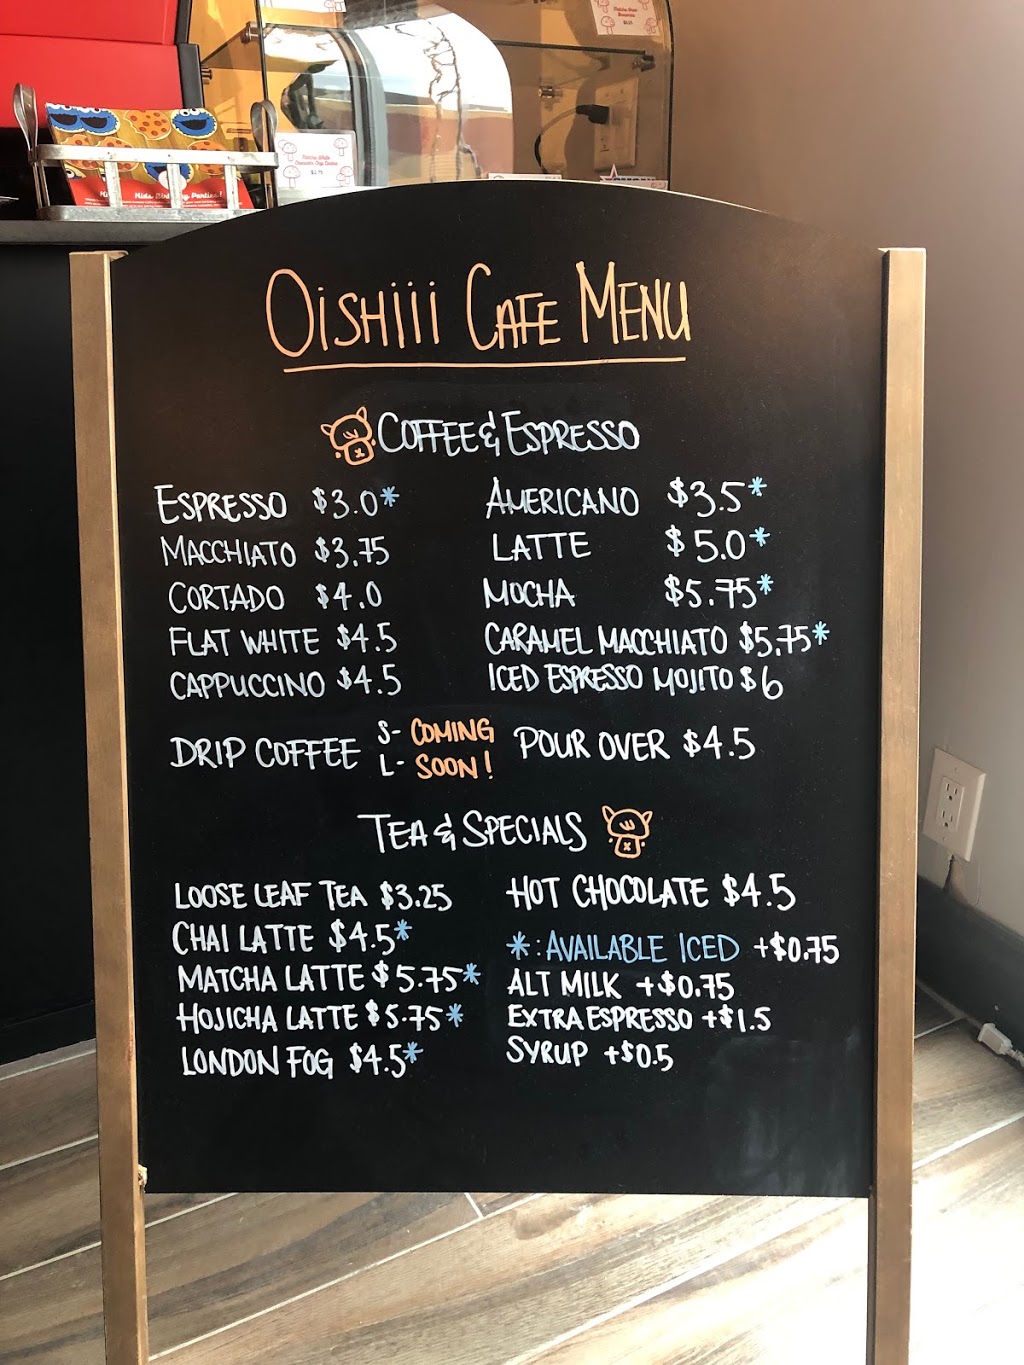 Matcha White
Chocolate Chip Cookie
$2.75
Oishiii Cafe Menu
Coffee & Espresso
Espresso $3.0*
Macchiato $3.75
Cortado $4.0
Flat White $4.5
Cappuccino $4.5
Americano $3.5*
Latte $5.0*
Mocha $5.75*
Caramel Macchiato $5.75*
Iced Espresso Mojito $6
Drip Coffee S- Coming
L- Soon!
Pour Over $4.5
Tea & Specials
Loose Leaf Tea $3.25
Chai Latte $4.5*
Matcha Latte $5.75*
Hojicha Latte $5.75*
London Fog $4.5*
Hot Chocolate $4.5
*: Available Iced +$0.75
Alt Milk +$0.75
Extra Espresso +$1.5
Syrup +$0.5